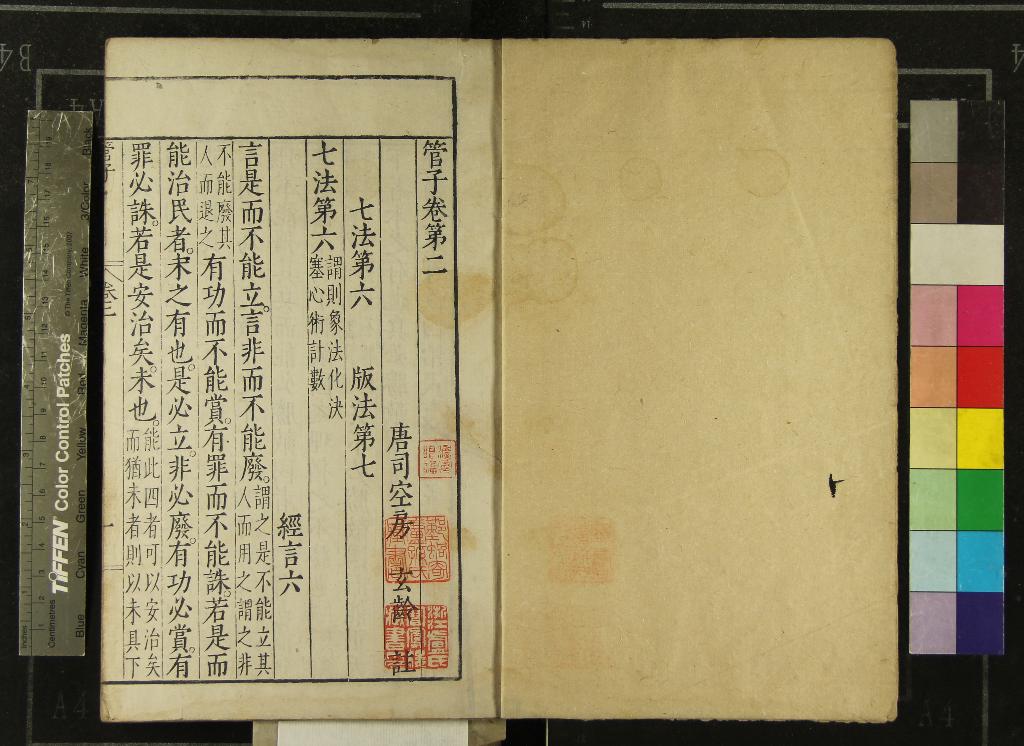 管子卷第二
唐司空房 玄齡 註
七法第六 版法第七
七法第六 謂則象法化決塞心術計數
經言六
言是而不能立。言非而不能廢。謂之是不能立其人而用之謂之非
不能廢其人而退之有功而不能賞。有罪而不能誅。若是而
能治民者。未之有也。是必立。非必廢。有功必賞。有
罪必誅。若是安治矣。未也。能此四者可以安治矣而猶未者則以未具下
TIFFEN Color Control Patches
© The Tiffen Company, 2007
Inches
Centimetres
Blue
Cyan
Green
Yellow
Red
Magenta
White
3/Color
Black
B4
A4
A4
A4